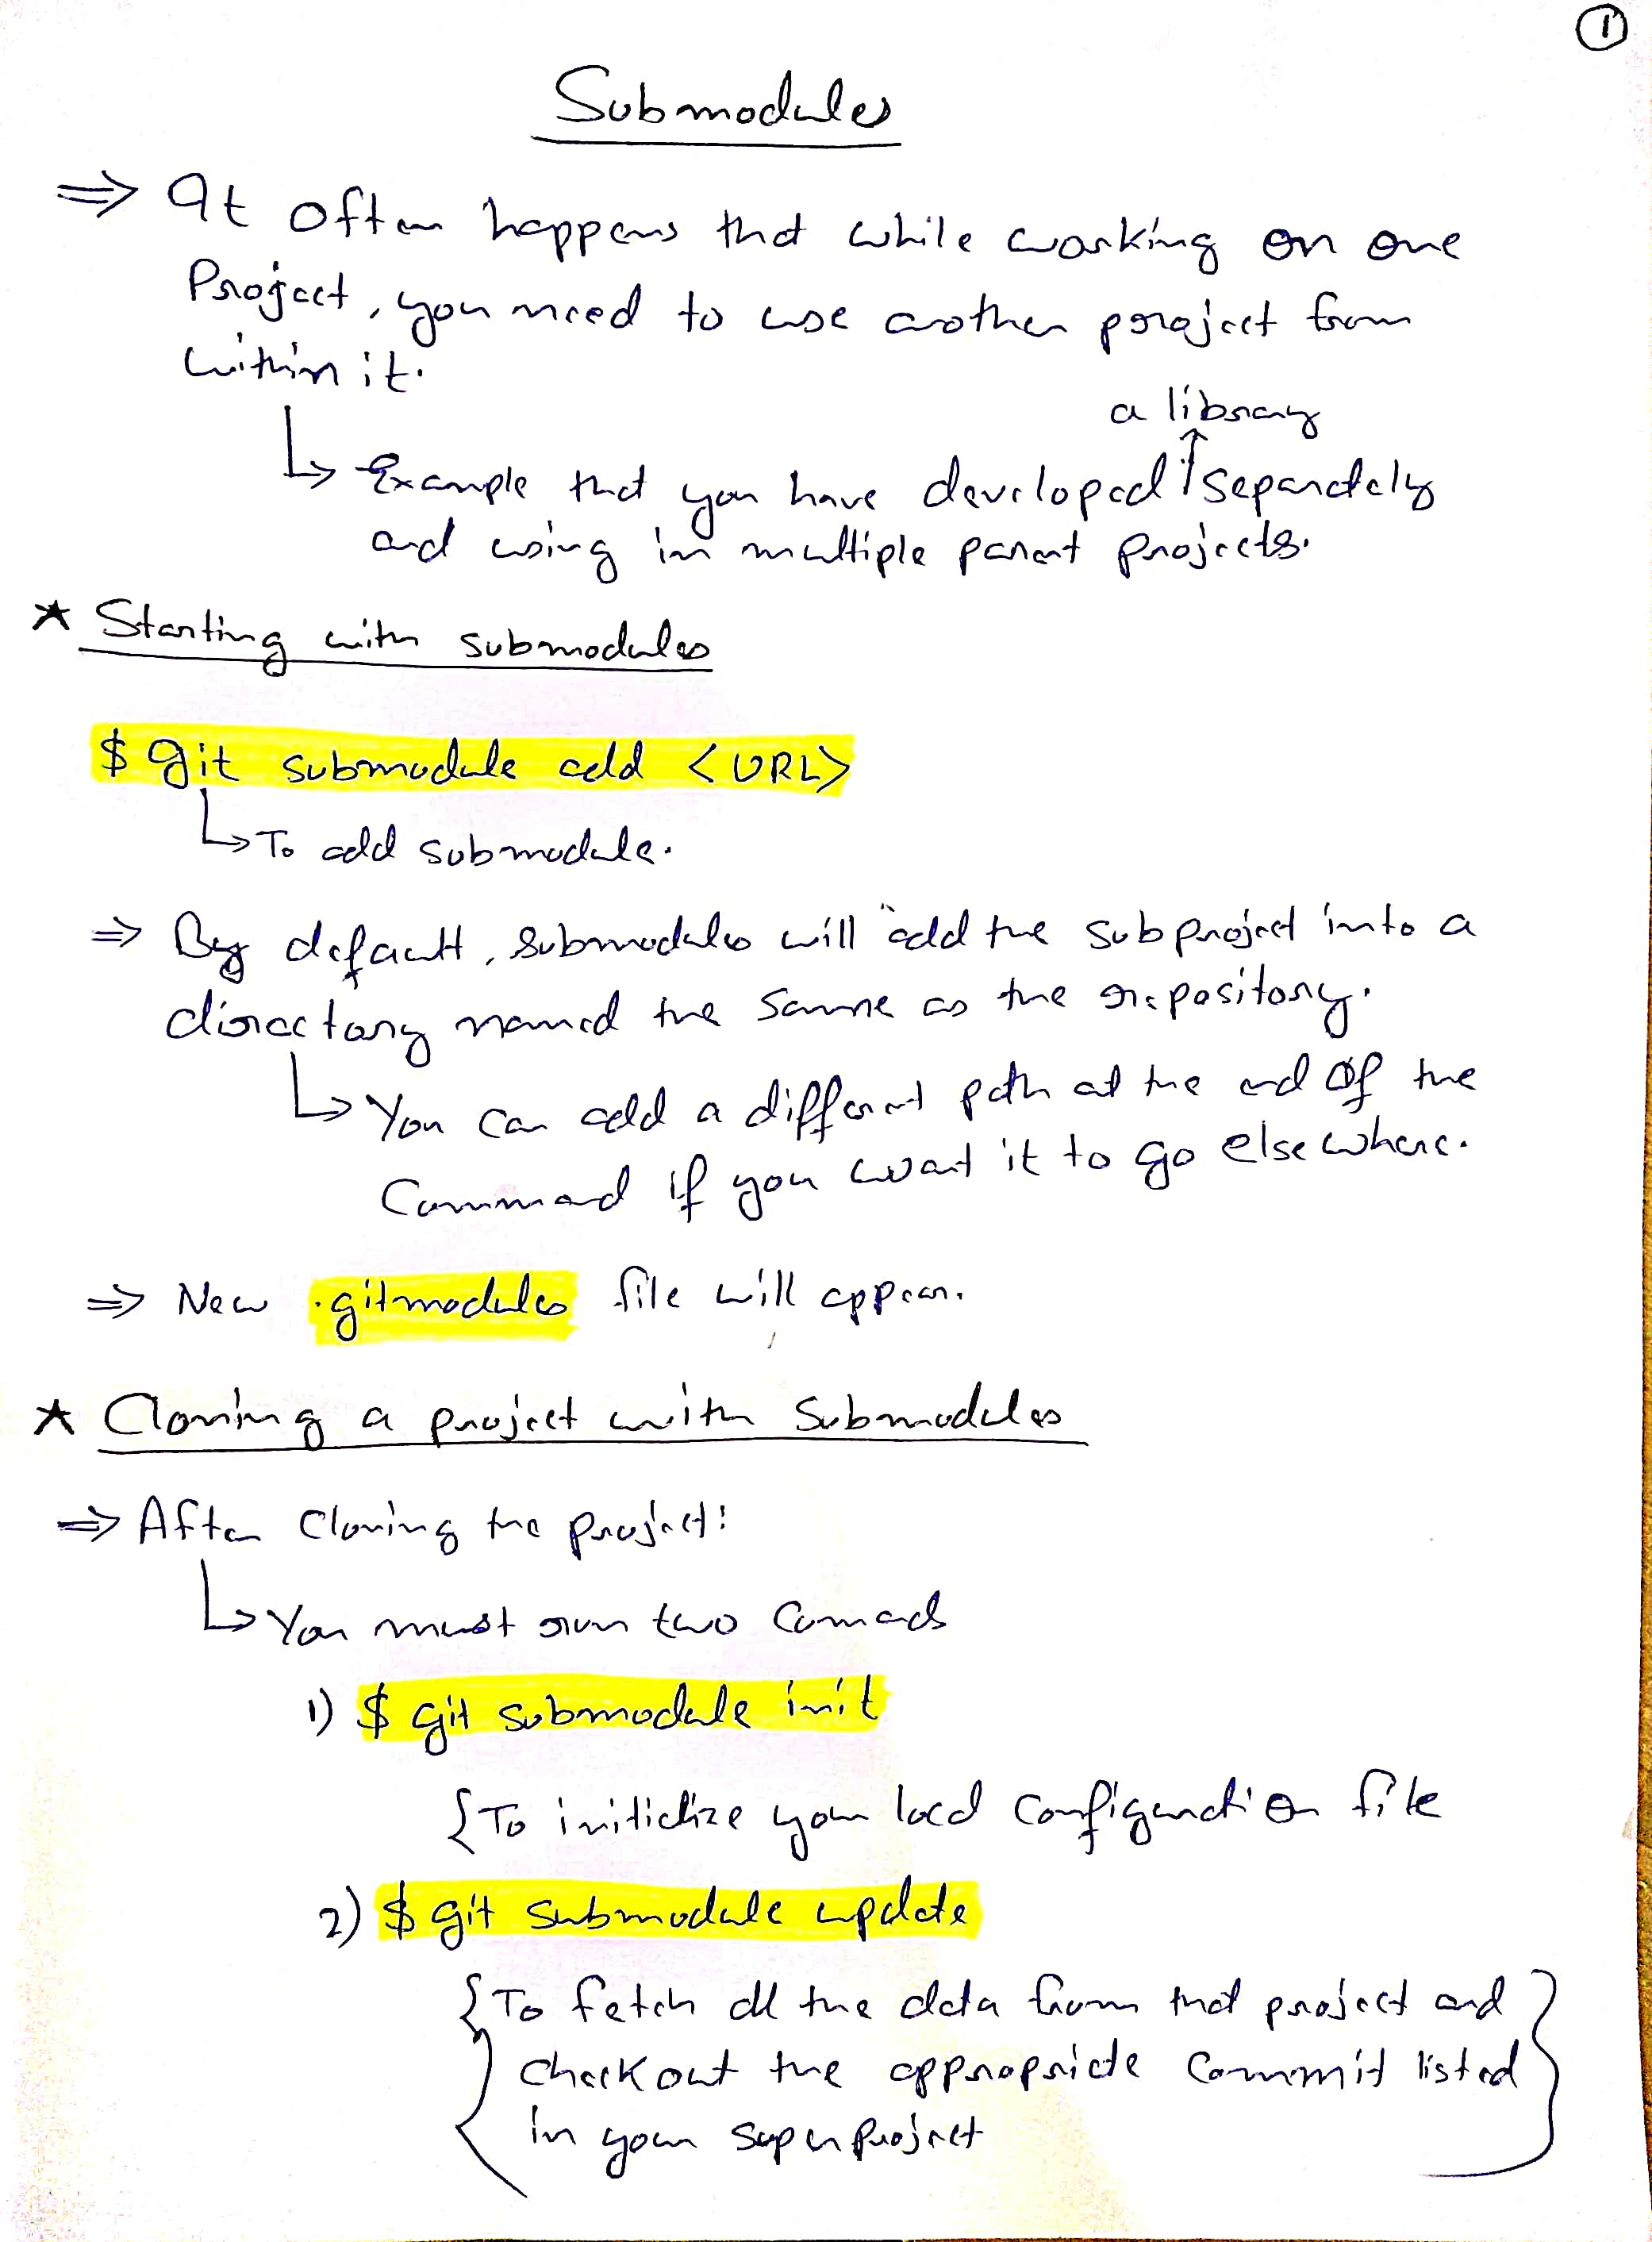 1
Submodules
⇒ It often happens that while working on one
Project, you need to use another project from
within it.
a library
↳ Example that you have developed ↑ separately
and using in multiple parent projects.
* Starting with submodules
$ git submodule add <URL>
↳ To add submodule.
⇒ By default, submodules will add the subproject into a
directory named the same as the repository.
↳ You can add a different path at the end of the
Command if you want it to go elsewhere.
⇒ New .gitmodules file will appear.
* Cloning a project with Submodules
⇒ After Cloning the project:
↳ You must run two Comands
1) $ git submodule init
{ To initialize your local Configuration file
2) $ git submodule update
{ To fetch all the data from that project and }
check out the appropriate Commit listed
in your superproject